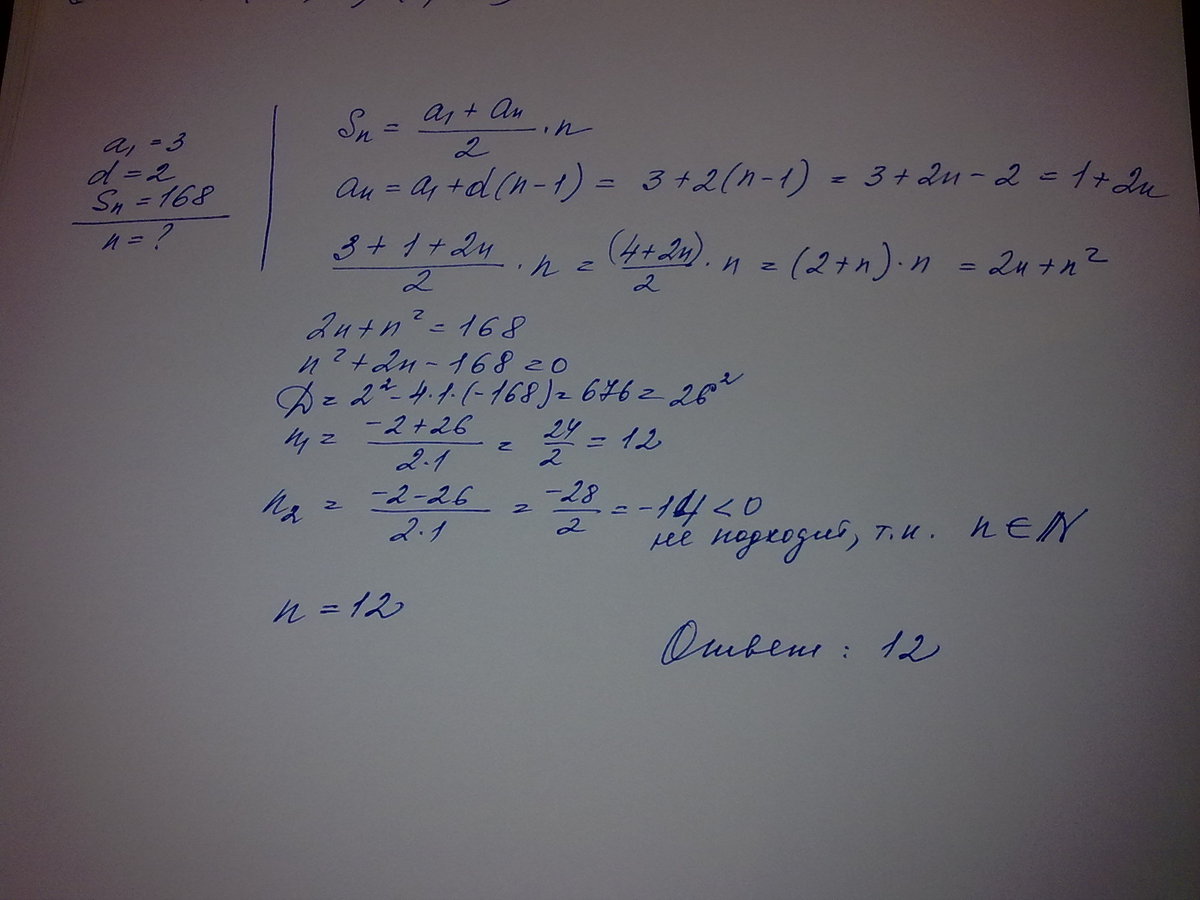 a₁ = 3
d = 2
Sₙ = 168
n = ?
Sₙ = (a₁ + aₙ)/2 · n
aₙ = a₁ + d(n-1) = 3 + 2(n-1) = 3 + 2n - 2 = 1 + 2n
(3 + 1 + 2n)/2 · n = (4+2n)/2 · n = (2+n) · n = 2n + n²
2n + n² = 168
n² + 2n - 168 = 0
D = 2² - 4·1·(-168) = 676 = 26²
n₁ = (-2+26)/(2·1) = 24/2 = 12
n₂ = (-2-26)/(2·1) = -28/2 = -14 < 0
не подходит, т.к. n ∈ N
n = 12
Ответ: 12